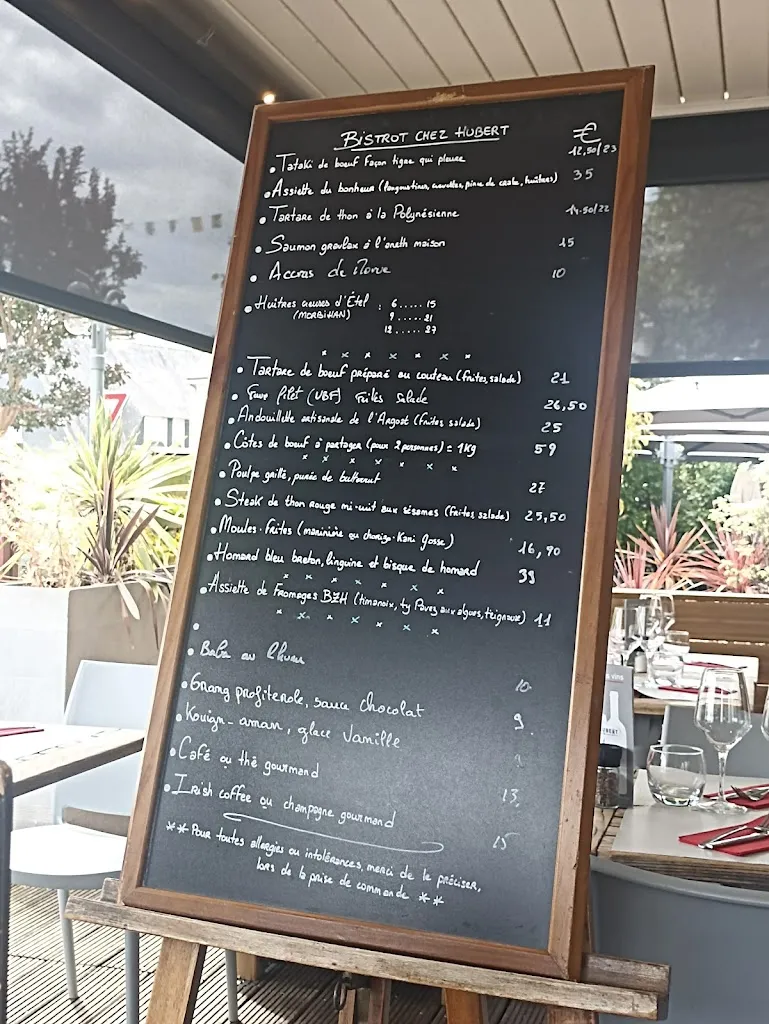 BISTROT CHEZ HUBERT €
• Tataki de boeuf façon tigre qui pleure 12,50/23
• Assiette du bonheur (langoustines, crevettes, pince de crabe, huîtres) 35
• Tartare de thon à la Polynésienne 14.50/22
• Saumon gravlax à l'aneth maison 15
• Accras de Morue 10
• Huîtres creuses d'Étel : 6.....15
(MORBIHAN) 9.....21
12.....27
x x x x x x x
• Tartare de boeuf préparé au couteau (frites, salade) 21
• Filet (VBF) Frites Salade 26,50
• Andouillette artisanale de l'Argoat (frites salade) 25
• Côtes de boeuf à partager (pour 2 personnes) = 1Kg 59
x x x x x x x
• Poulpe grillé, purée de butternut 27
• Steak de thon rouge mi-cuit aux sésames (frites, salade) 25,50
• Moules-Frites (marinière ou chorizo-Kari Gosse) 16,90
• Homard bleu breton, linguine et bisque de homard 39
x x x x x x x
• Assiette de Fromages BZH (timanoix, ty Pavez aux algues, Trégnaoux) 11
x x x x x x
•
• Baba au Rhum 10
• Grang profiterole, sauce chocolat 9
• Kouign-aman, glace Vanille
• Café ou thé gourmand 13
• Irish coffee ou champagne gourmand 15
** Pour toutes allergies ou intolérances, merci de le préciser,
lors de la prise de commande **